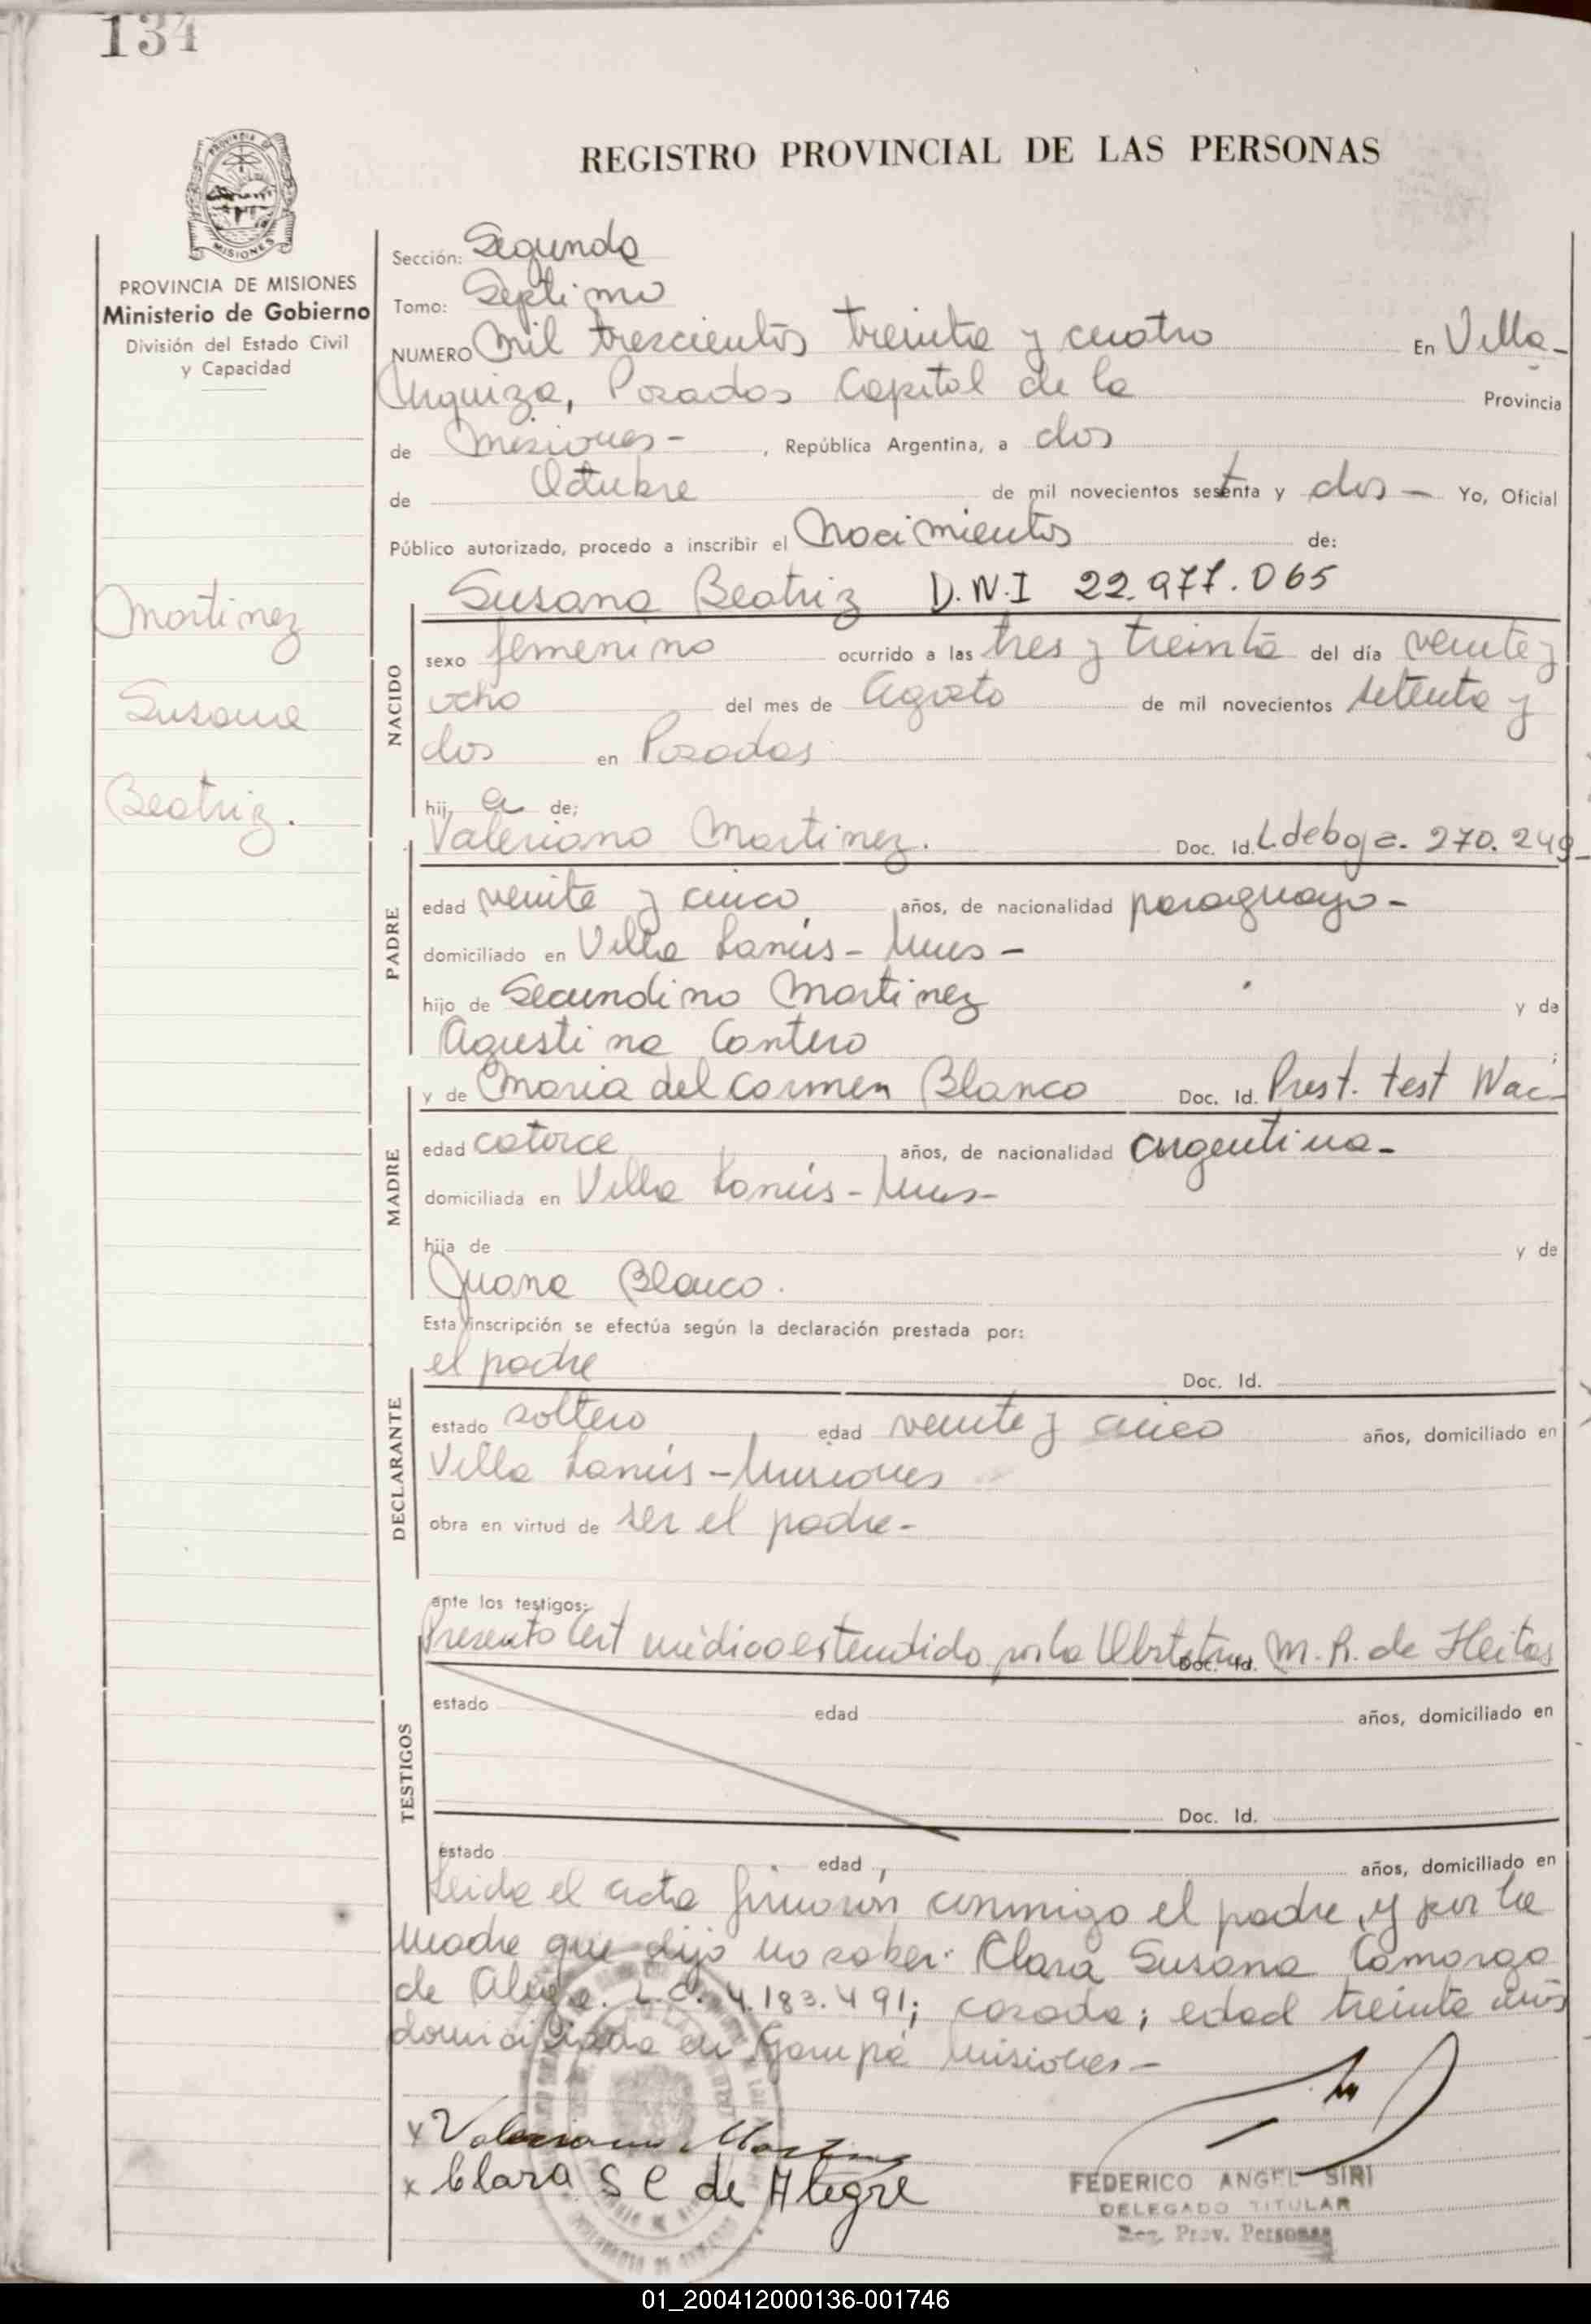 134
PROVINCIA
MISIONES
REGISTRO PROVINCIAL DE LAS PERSONAS
PROVINCIA DE MISIONES
Ministerio de Gobierno
División del Estado Civil
y Capacidad
Martinez
Susana
Beatriz.
Sección: Segunda
Tomo: Septimo
NUMERO Mil trescientos treinta y cuatro En Villa-
Urquiza, Posadas Capital de la Provincia
de Misiones- , República Argentina, a dos
de Octubre de mil novecientos setenta y dos — Yo, Oficial
Público autorizado, procedo a inscribir el Nacimientos de:
Susana Beatriz D.N.I 22.977.065
NACIDO
sexo femenino ocurrido a las tres y treinta del día veinte y
ocho del mes de Agosto de mil novecientos setenta y
dos en Posadas
hij a de;
Valeriano Martinez. Doc. Id. 270.249-
PADRE
edad veinte y cinco años, de nacionalidad paraguayo-
domiciliado en Villa Lanús- Mnes-
hijo de Secundino Martinez y de
Agustina Cantero
y de Maria del Carmen Blanco Doc. Id. Prest. test Nac-
MADRE
edad catorce años, de nacionalidad argentina-
domiciliada en Villa Lanús- Mnes-
hija de y de
Juana Blanco.
Esta inscripción se efectúa según la declaración prestada por:
el padre Doc. Id.
DECLARANTE
estado soltero edad veinte y cinco años, domiciliado en
Villa Lanús-Misiones
obra en virtud de ser el padre-
ante los testigos:
Presento Cert médico estendido por la Obstetra M. R. de Fleitas
Doc. Id.
TESTIGOS
estado edad años, domiciliado en
Doc. Id.
estado edad años, domiciliado en
Leida el acta firmaron conmigo el padre, y por la
Madre que dijo no saber: Clara Susana Camargo
de Alegre. L.C. 4.183.491; casada; edad treinta años
domiciliada en Garupá Misiones-
x Valeriano Martinez
x Clara S C de Alegre
FEDERICO ANGEL SIRI
DELEGADO TITULAR
Reg. Prov. Personas
01_200412000136-001746